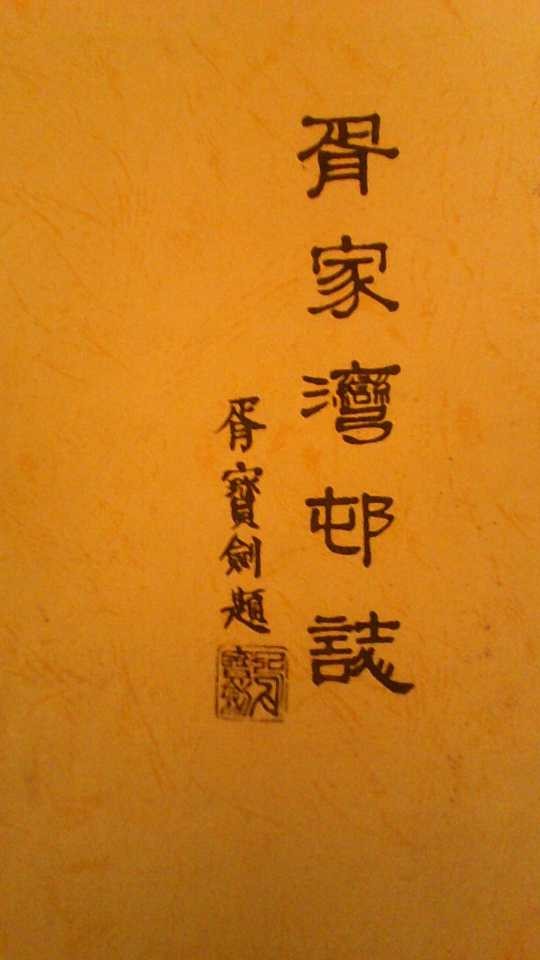 胥家灣邨誌
胥寶劍題